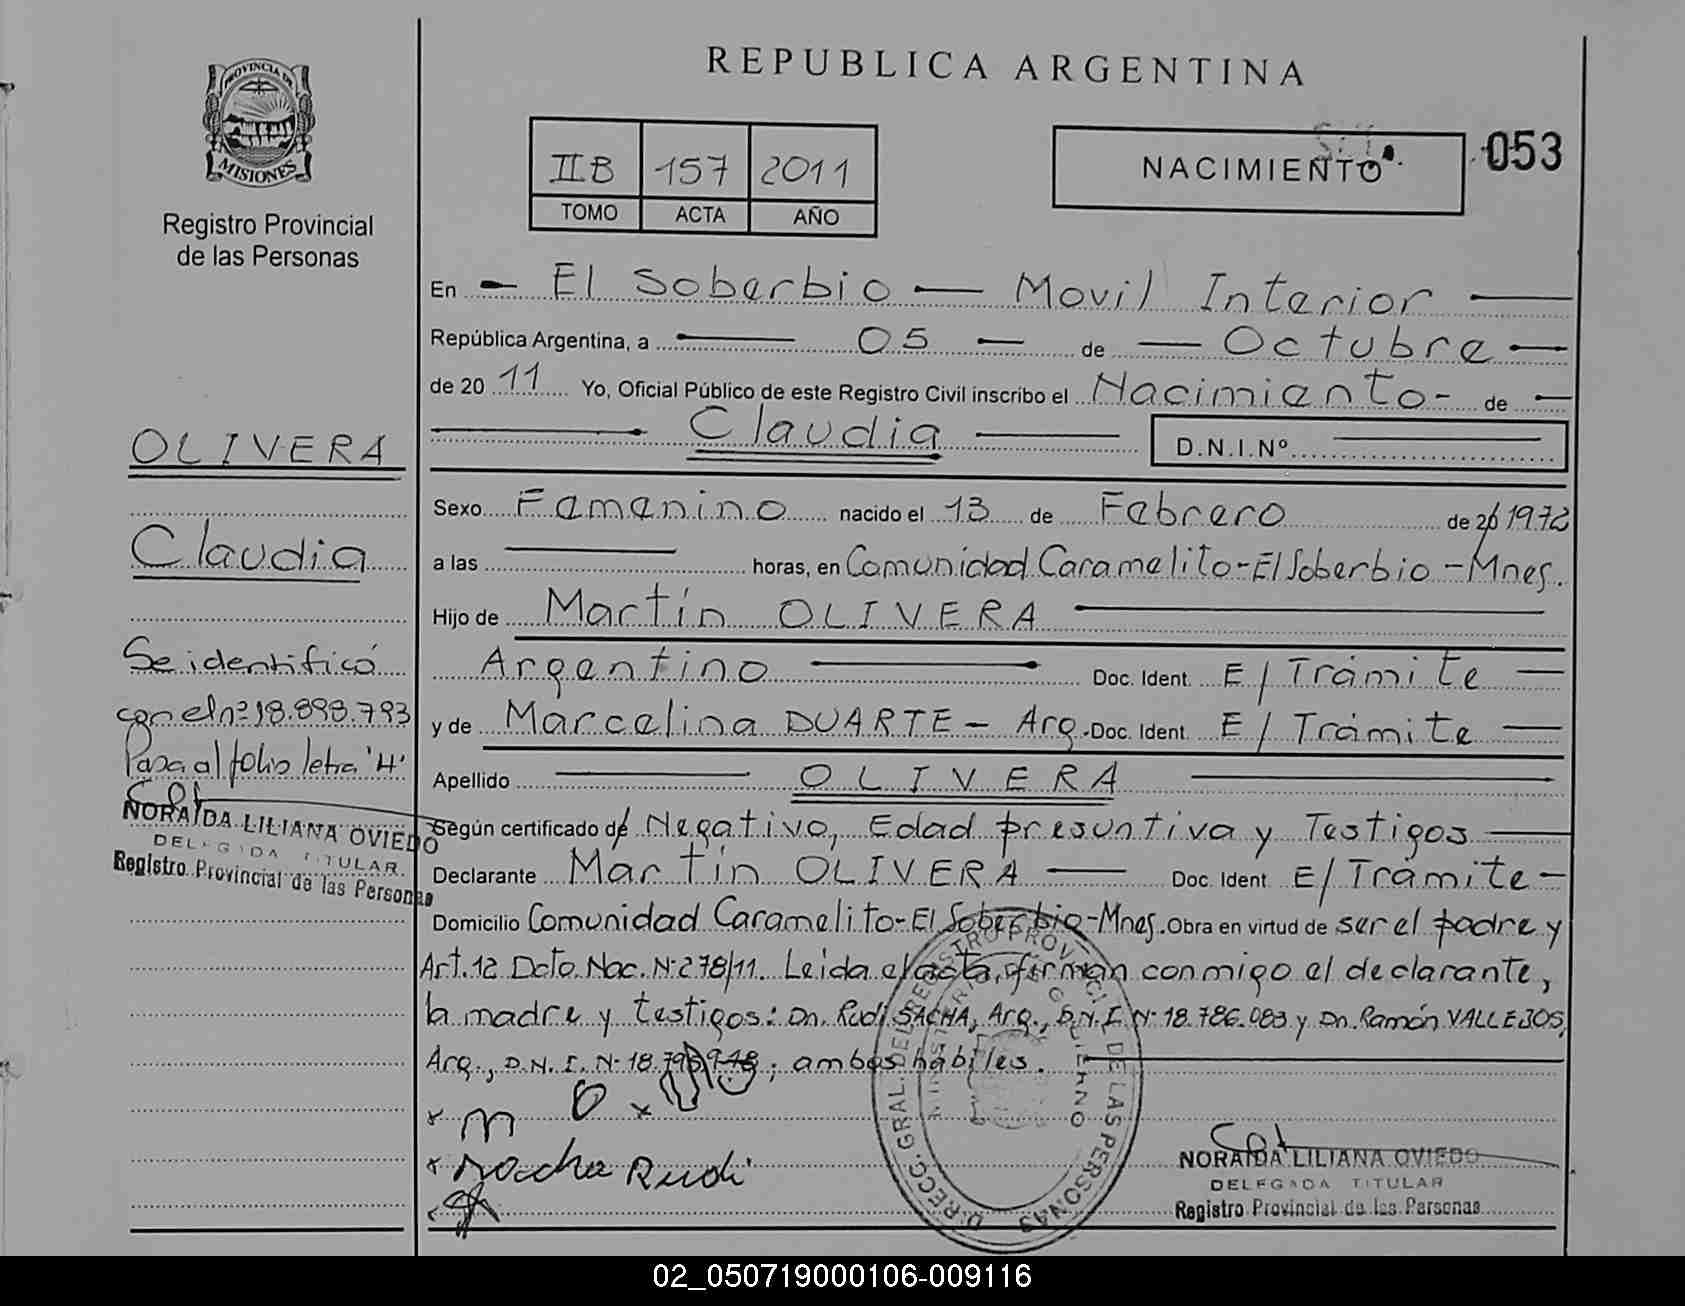 REPUBLICA ARGENTINA
PROVINCIA DE
MISIONES
Registro Provincial
de las Personas
II B 157 2011
TOMO ACTA AÑO
NACIMIENTO
053
En El Soberbio - Movil Interior
República Argentina, a 05 de Octubre
de 20 11 Yo, Oficial Público de este Registro Civil inscribo el Nacimiento - de
Claudia D.N.I.Nº
Sexo Femenino nacido el 13 de Febrero de 20 1972
a las horas, en Comunidad Caramelito - El Soberbio - Mnes.
Hijo de Martín OLIVERA
Argentino Doc. Ident. E/Trámite
y de Marcelina DUARTE - Arg. Doc. Ident. E/Trámite
Apellido OLIVERA
Según certificado de Negativo, Edad presuntiva y Testigos
Declarante Martín OLIVERA Doc. Ident. E/Trámite -
Domicilio Comunidad Caramelito - El Soberbio - Mnes. Obra en virtud de ser el padre y
Art. 12 Dcto. Nac. Nº 278/11. Leida el acta, firman conmigo el declarante,
la madre y testigos: Dn. Rudi SACHA, Arg., D.N.I. Nº 18.786.083 y Dn. Ramón VALLEJOS,
Arg., D.N.I. Nº 18. ; ambos hábiles.
Rudi
OLIVERA
Claudia
Se identificó
con el nº 18.898.793
Pasa al folio letra "H"
NORAIDA LILIANA OVIEDO
DELEGADA TITULAR
Registro Provincial de las Personas
NORAIDA LILIANA OVIEDO
DELEGADA TITULAR
Registro Provincial de las Personas
DIRECC. GRAL. DEL REGISTRO PROVINCIAL DE LAS PERSONAS
02_050719000106-009116